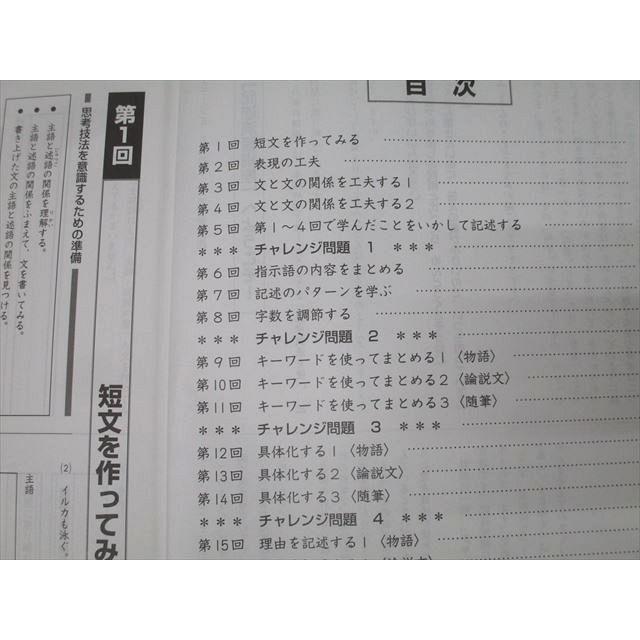 目次
第1回 短文を作ってみる
第2回 表現の工夫
第3回 文と文の関係を工夫する1
第4回 文と文の関係を工夫する2
第5回 第1〜4回で学んだことをいかして記述する
＊＊＊ チャレンジ問題 1 ＊＊＊
第6回 指示語の内容をまとめる
第7回 記述のパターンを学ぶ
第8回 字数を調節する
＊＊＊ チャレンジ問題 2 ＊＊＊
第9回 キーワードを使ってまとめる1〈物語〉
第10回 キーワードを使ってまとめる2〈論説文〉
第11回 キーワードを使ってまとめる3〈随筆〉
＊＊＊ チャレンジ問題 3 ＊＊＊
第12回 具体化する1〈物語〉
第13回 具体化する2〈論説文〉
第14回 具体化する3〈随筆〉
＊＊＊ チャレンジ問題 4 ＊＊＊
第15回 理由を記述する1〈物語〉
第1回 短文を作ってみ
■思考技法を意識するための準備
●主語と述語の関係を理解する。
●主語と述語の関係をふまえて、文を書いてみる。
●書き上げた文の主語と述語の関係を見つける。
(2) イルカも泳ぐ。
主語